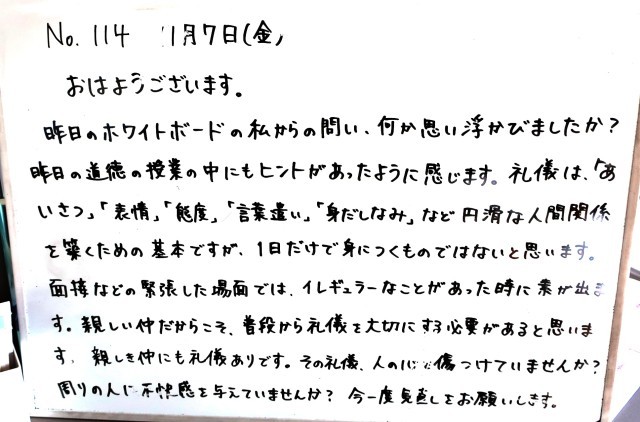 No. 114 11月7日(金)
おはようございます。
昨日のホワイトボードの私からの問い、何か思い浮かびましたか?
昨日の道徳の授業の中にもヒントがあったように感じます。礼儀は、「あ
いさつ」「表情」「態度」「言葉遣い」「身だしなみ」など円滑な人間関係
を築くための基本ですが、1日だけで身につくものではないと思います。
面接などの緊張した場面では、イレギュラーなことがあった時に素が出ま
す。親しい仲だからこそ、普段から礼儀を大切にする必要があると思いま
す。親しき仲にも礼儀ありです。その礼儀、人の心を傷つけていませんか?
周りの人に不快感を与えていませんか? 今一度見直しをお願いします。